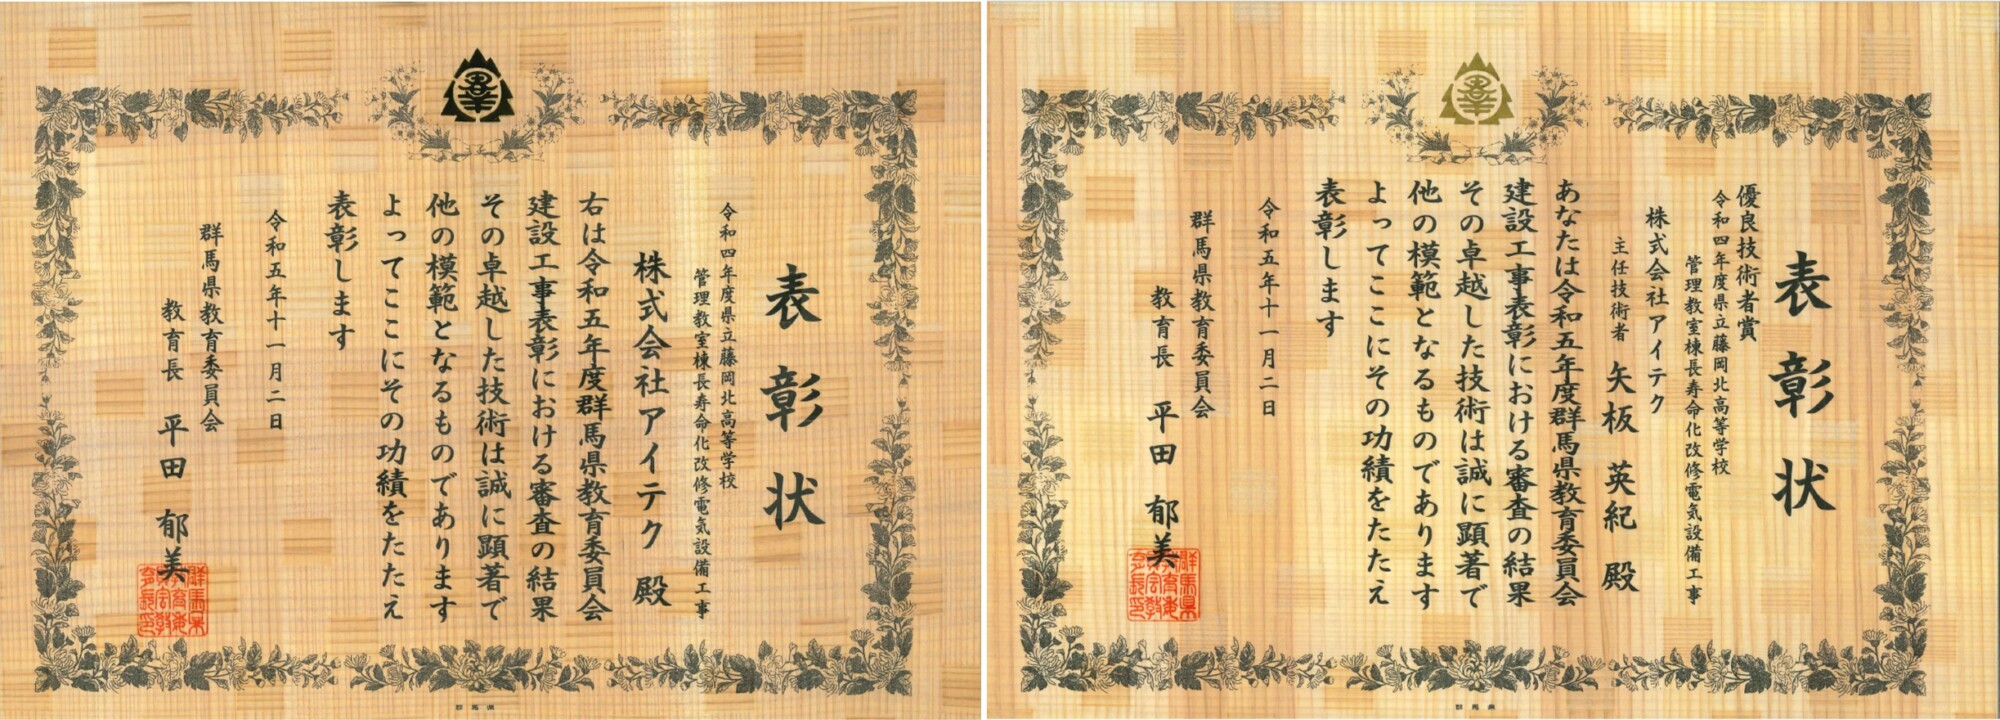 表彰状
令和四年度県立藤岡北高等学校
管理教室棟長寿命化改修電気設備工事
株式会社アイテク 殿
右は令和五年度群馬県教育委員会
建設工事表彰における審査の結果
その卓越した技術は誠に顕著で
他の模範となるものであります
よってここにその功績をたたえ
表彰します
令和五年十一月二日
群馬県教育委員会
教育長 平田 郁美
群馬県
表彰状
優良技術者賞
令和四年度県立藤岡北高等学校
管理教室棟長寿命化改修電気設備工事
株式会社アイテク
主任技術者 矢板 英紀 殿
あなたは令和五年度群馬県教育委員会
建設工事表彰における審査の結果
その卓越した技術は誠に顕著で
他の模範となるものであります
よってここにその功績をたたえ
表彰します
令和五年十一月二日
群馬県教育委員会
教育長 平田 郁美
群馬県